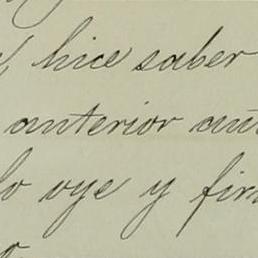 hice saber
anterior
lo oye y